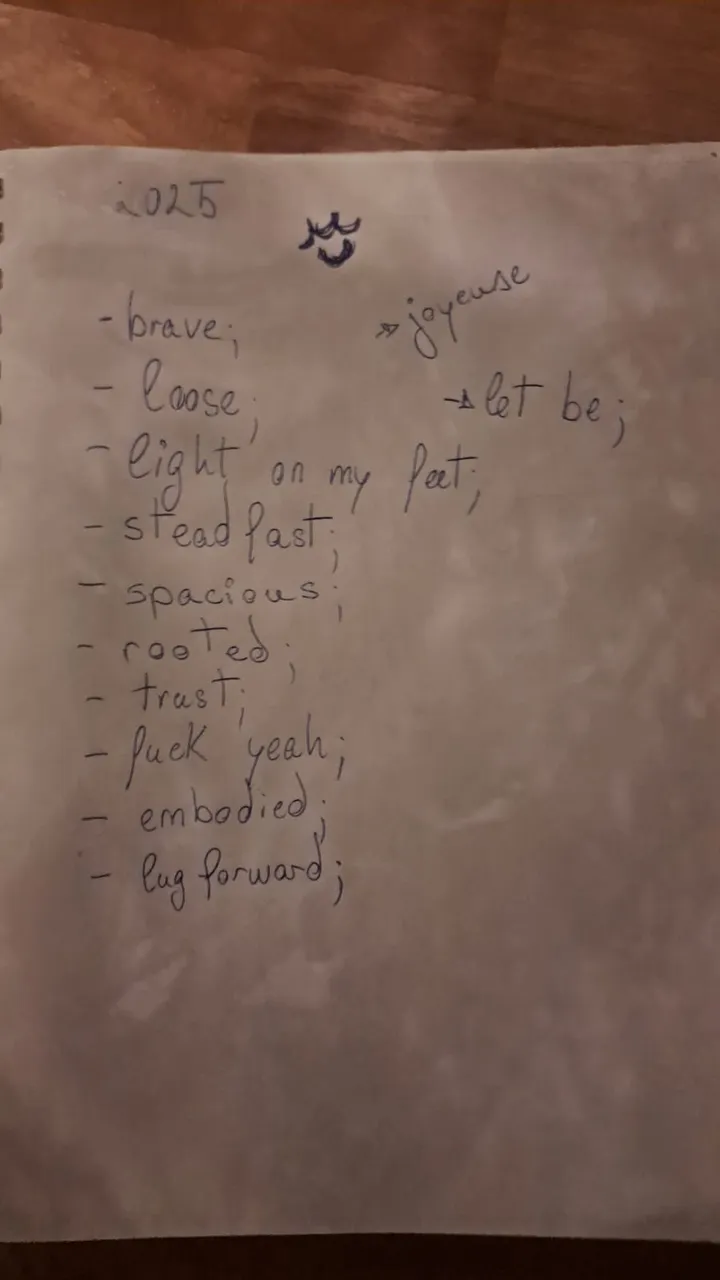 2025
- brave;
→ joyeuse
- loose;
→ let be;
- light on my feet;
- steadfast;
- spacious;
- rooted;
- trust;
- fuck yeah;
- embodied;
- lug forward;